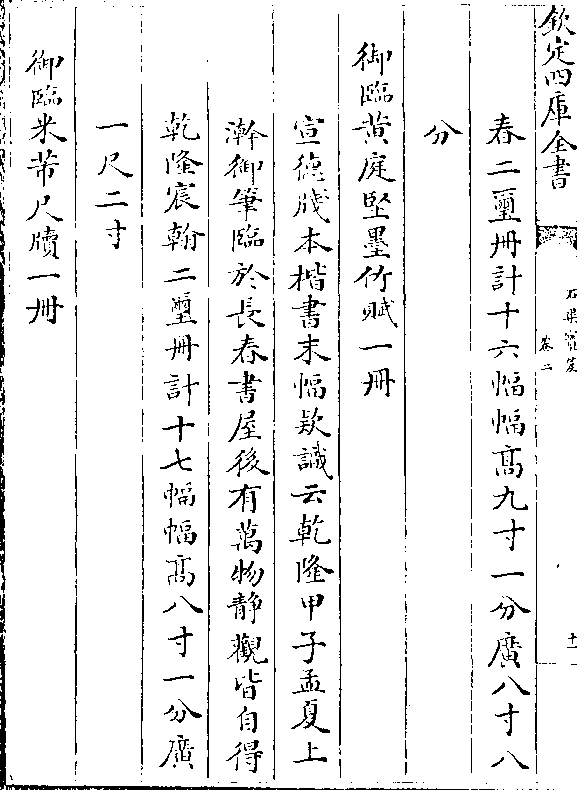 欽定四庫全書
石渠寶笈
卷二
十一
春二璽冊計十六幅幅髙九寸一分廣八寸八
分
御臨黄庭堅墨竹賦一冊
宣德牋本楷書末幅欵識云乾隆甲子孟夏上
澣御筆臨於長春書屋後有萬物静觀皆自得
乾隆宸翰二璽冊計十七幅幅髙八寸一分廣
一尺二寸
御臨米芾尺牘一冊